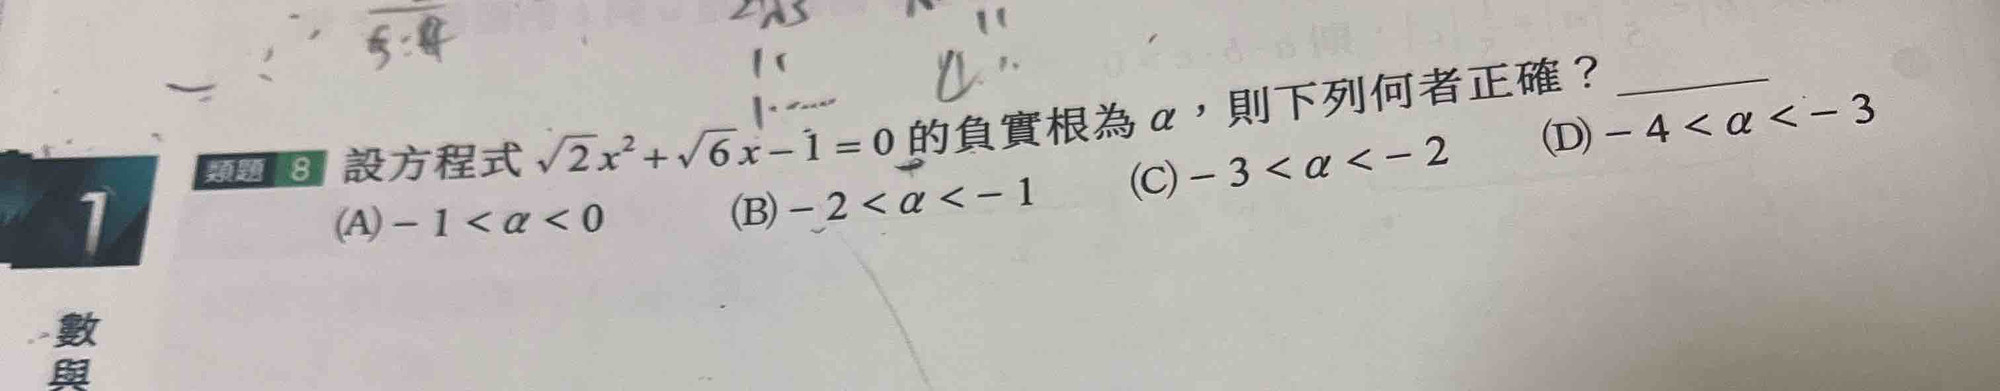 類題 8 設方程式 √2x²+√6x−1=0的負實根為α，則下列何者正確？______
(A)−1<α<0 (B)−2<α<−1 (C)−3<α<−2 (D)−4<α<−3
1
數
與